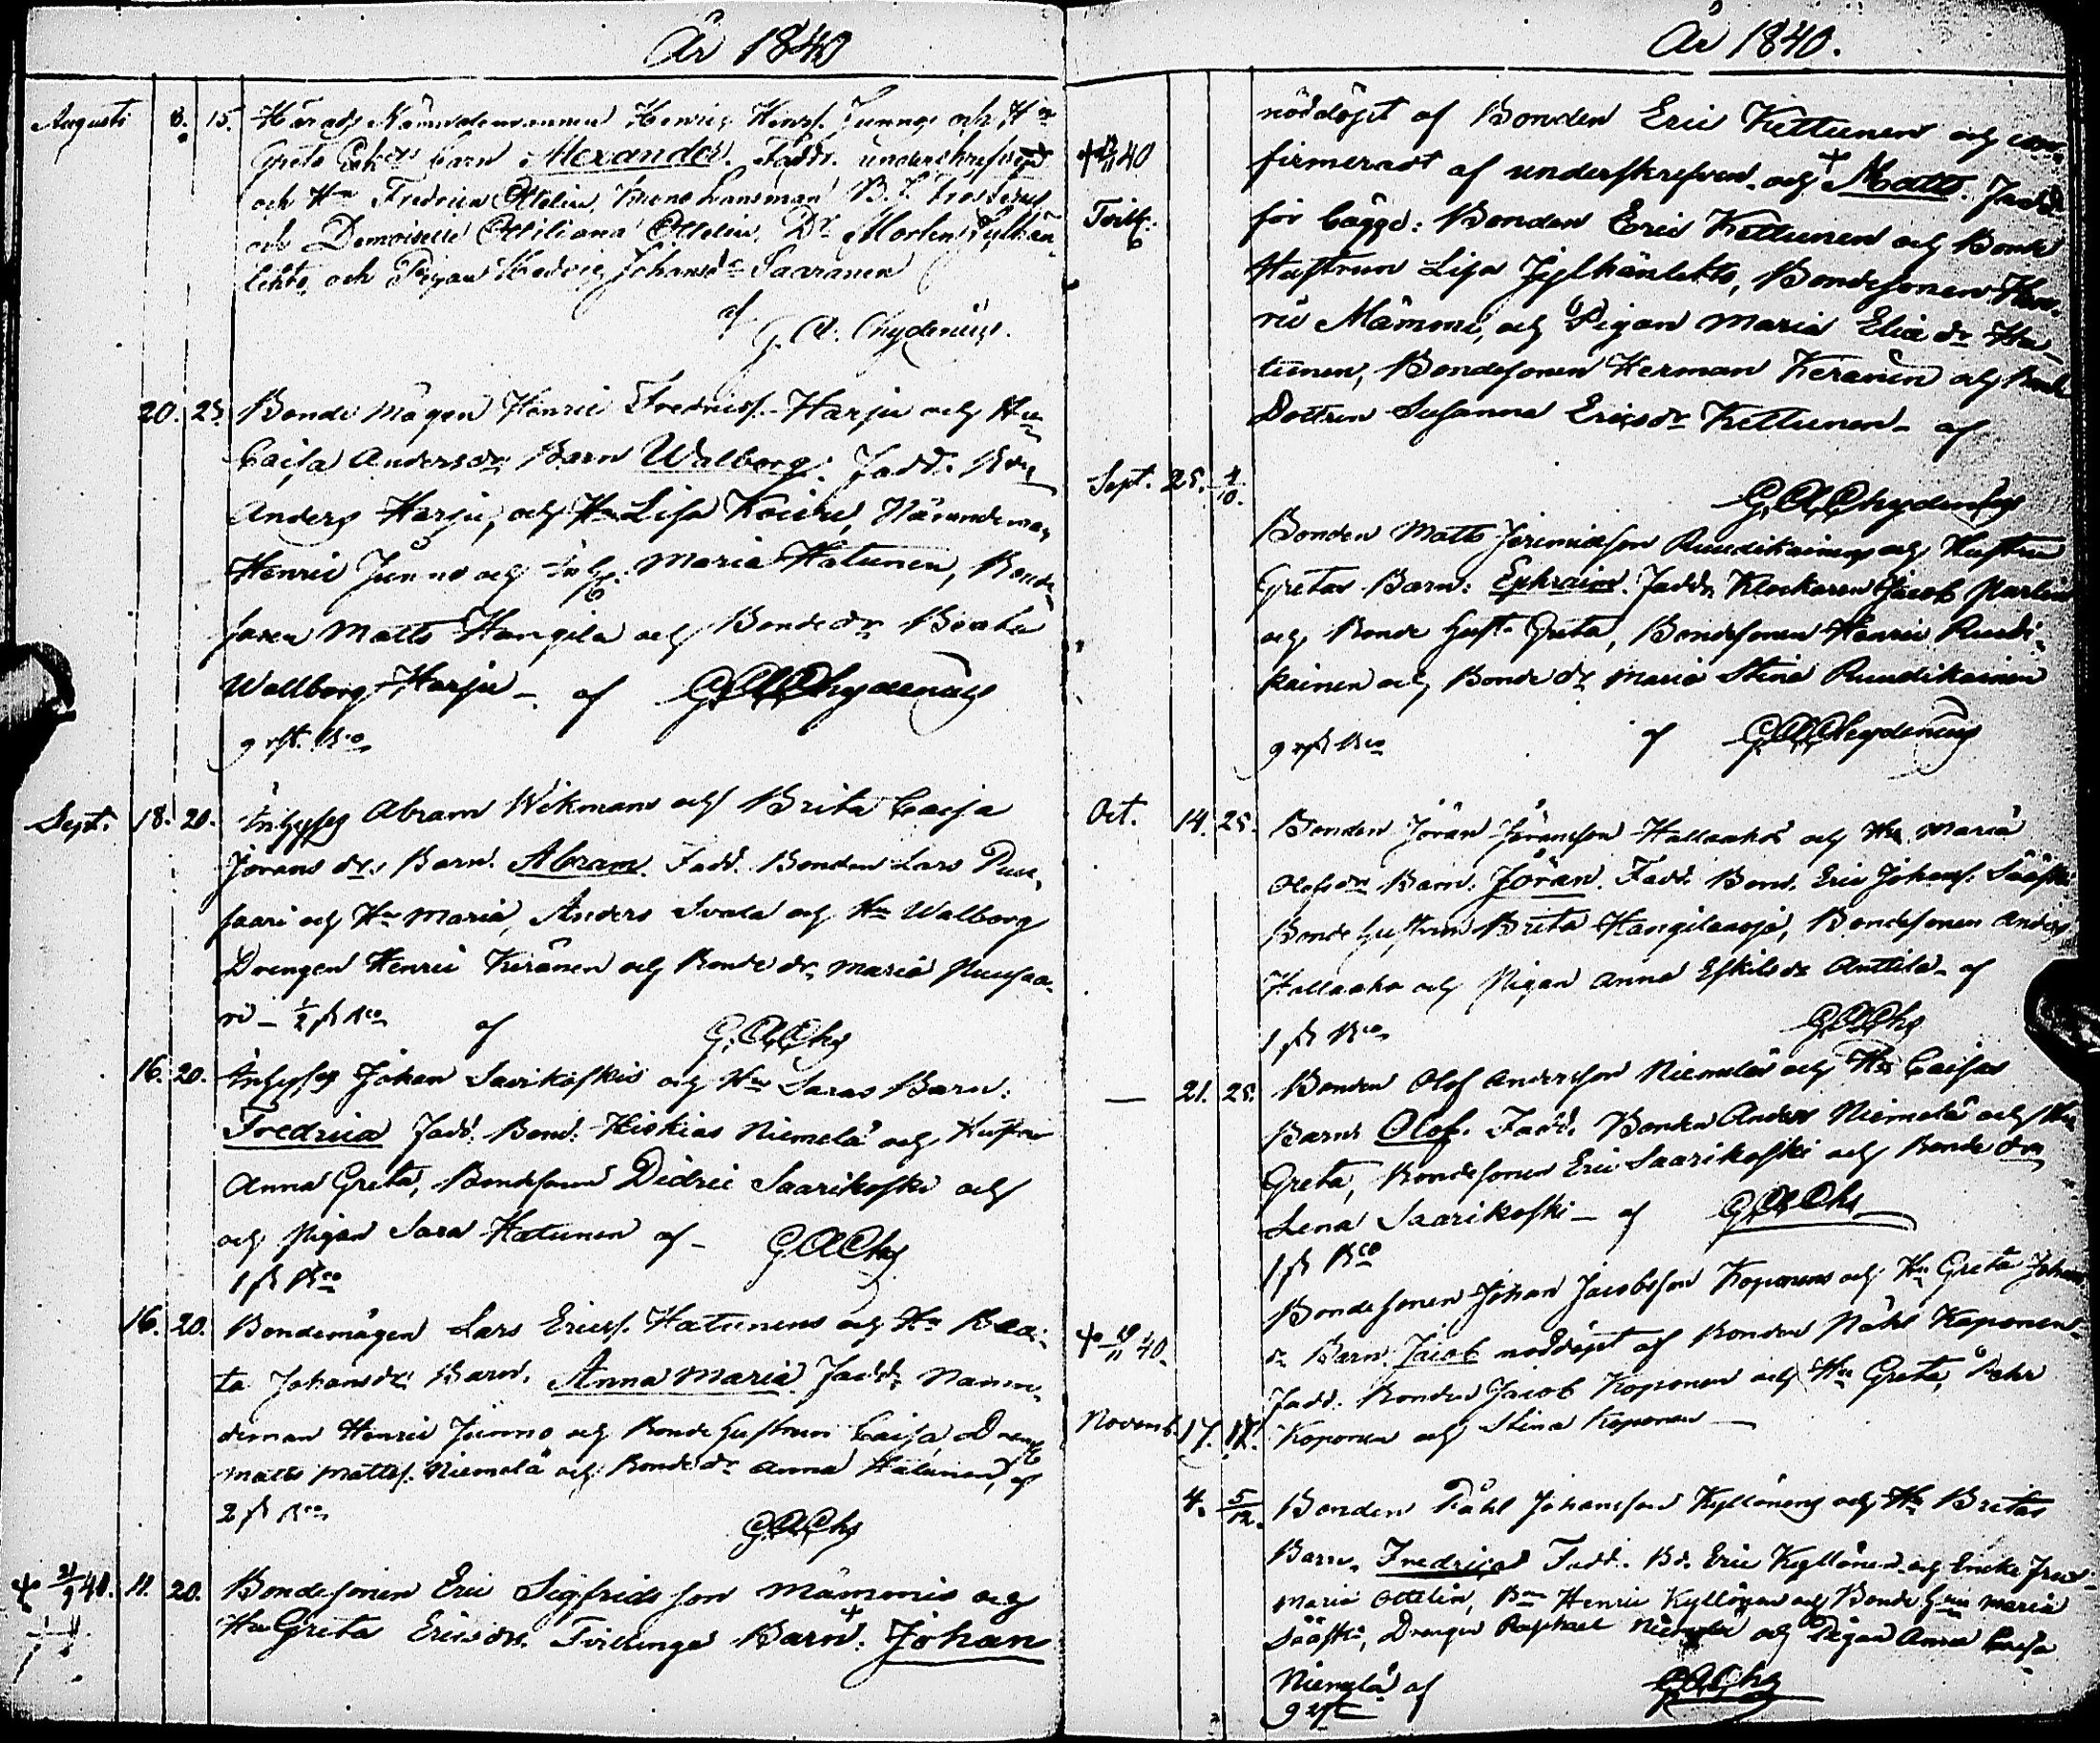 År 1840
Augusti 8. 15. Härads Nämndemannen Henric Henrs. Junnos och Hu
Greta barn Alexander. Fadd. underskrifven
och Hu Fredrica Ottelin, Krono Länsman B. J. Frosterus
och Demoiselle Ottiliana Ottelin, Dr. Morten Jylhän
lehto, och Pigan Hedvig Johansdr Saaranen
af G. A. Chydenius.
20. 25. Bonde Mågen Henric Fredricss. Harju och Hu
Caisa Andersdr Barn Walborg. Fadd. Bdn
Anders Harju, och Hu Lisa Koivu, Nämndeman
Henric Junno och Inh. Maria Hatunen, Bonde
sonen Matts Hangila och Bondedr Beata
Wallborg Harju - af G. A. Chydenius
9 rst. Bco
Sept. 18. 20. Inhyses Abram Wikmans och Brita Caisa
Jörans dr. Barn. Abram. Fadd. Bonden Lars Puu
saari och Hu Maria, Anders Svala och Hu Walborg
Drengen Henric Keränen och Bonde dr. Maria Puusaa
ri - 1/2 sk Bco af G. A. Chs
16. 20. Inhyses Johan Sarikoskis och Hu Saras Barn:
Fredrica Fadd. Bond. Hiskias Niemelä och Hustr
Anna Greta, Bondesonen Didric Saarikoski och
och Pigan Sara Hatunen af - G A Chs
1 sk Bco
16. 20. Bondemågen Lars Ericss. Hatunens och Hu Bea-
ta Johansdr. Barn. Anna Maria. Fadd. Nämn-
deman Henric Junno och Bonde Hustrun Caisa, Dreng
Matts Mattss. Niemelä och Bondedr Anna Hatunen, af
2 sk Bco
G. A. Chs
+ 21/9 40. 11. 20. Bondesonen Eric Sigfridsson Mämmis och
Hu Greta Ericsdr. Tvillinge Barn: + Johan
År 1840.
nöddöpt af Bonden Eric Kettunen och con-
firmeradt af underskrefven. och + Matts. Fadd.
40
Tvill.
för bägge: Bonden Eric Kettunen och Bonde
Hustrun Lisa Jylhänlehto, Bondesonen Hen-
ric Mämmi, och Pigan Maria Eliæ dr Ha-
tunen, Bondesonen Herman Keränen och Bonde
Dottren Susanna Ericsdr Kettunen - af
G. A. Chydenius
Sept. 25. 4/10. Bonden Matts Jeremiasson Ruudikainens och Hustru
Gretas Barn: Ephraim. Fadd. Klockaren Jacob
och Bonde Hust. Greta, Bondesonen Henric Ruudi-
kainen och Bonde dr Maria Stina Ruudikainen
9 rst Bco af G. A. Chydenius
Oct. 14. 25. Bonden Jöran Jöransson Hallaaho och Hu Maria
Olofsdr Barn. Jöran. Fadd. Bond. Eric Johanss. Sääski
Bonde hustrun Brita Hangilaoja, Bondesonen Anders
Hallaaho och Pigan Anna Eskilsdr Anttila - af
1 sk Bco G. A. Chs
— 21. 25. Bonden Olof Andersson Niemeläs och Hu Caisas
Barn. Olof. Fadd. Bonden Anders Niemelä och Hu
Greta, Bondesonen Eric Saarikoski och Bonde dr
Lena Saarikoski - af G. A. Chs
1 sk Bco
Bondesonen Johan Jacobsson Koponens och Hu Greta Johans
+ 19/11 40. dr Barn. Jacob nöddöpt af Bonden Påhl Koponen
Fadd. Bonden Jacob Koponen och Hu Greta, Pehr
Novemb. 17. 18. Koponen och Stina Koponen —
4. 5/12. Bonden Påhl Johansson Kyllönens och Hu Britas
Barn. Fredrica Fadd. Bd. Eric Kyllönen och Encke Fru
Maria Ottelin, Bn Henric Kyllönen och Bonde Hun Maria
Sääski, Drengen Raphael Niemelä och Pigan Anna Caisa
Niemelä af G. A. Chs
9 rst